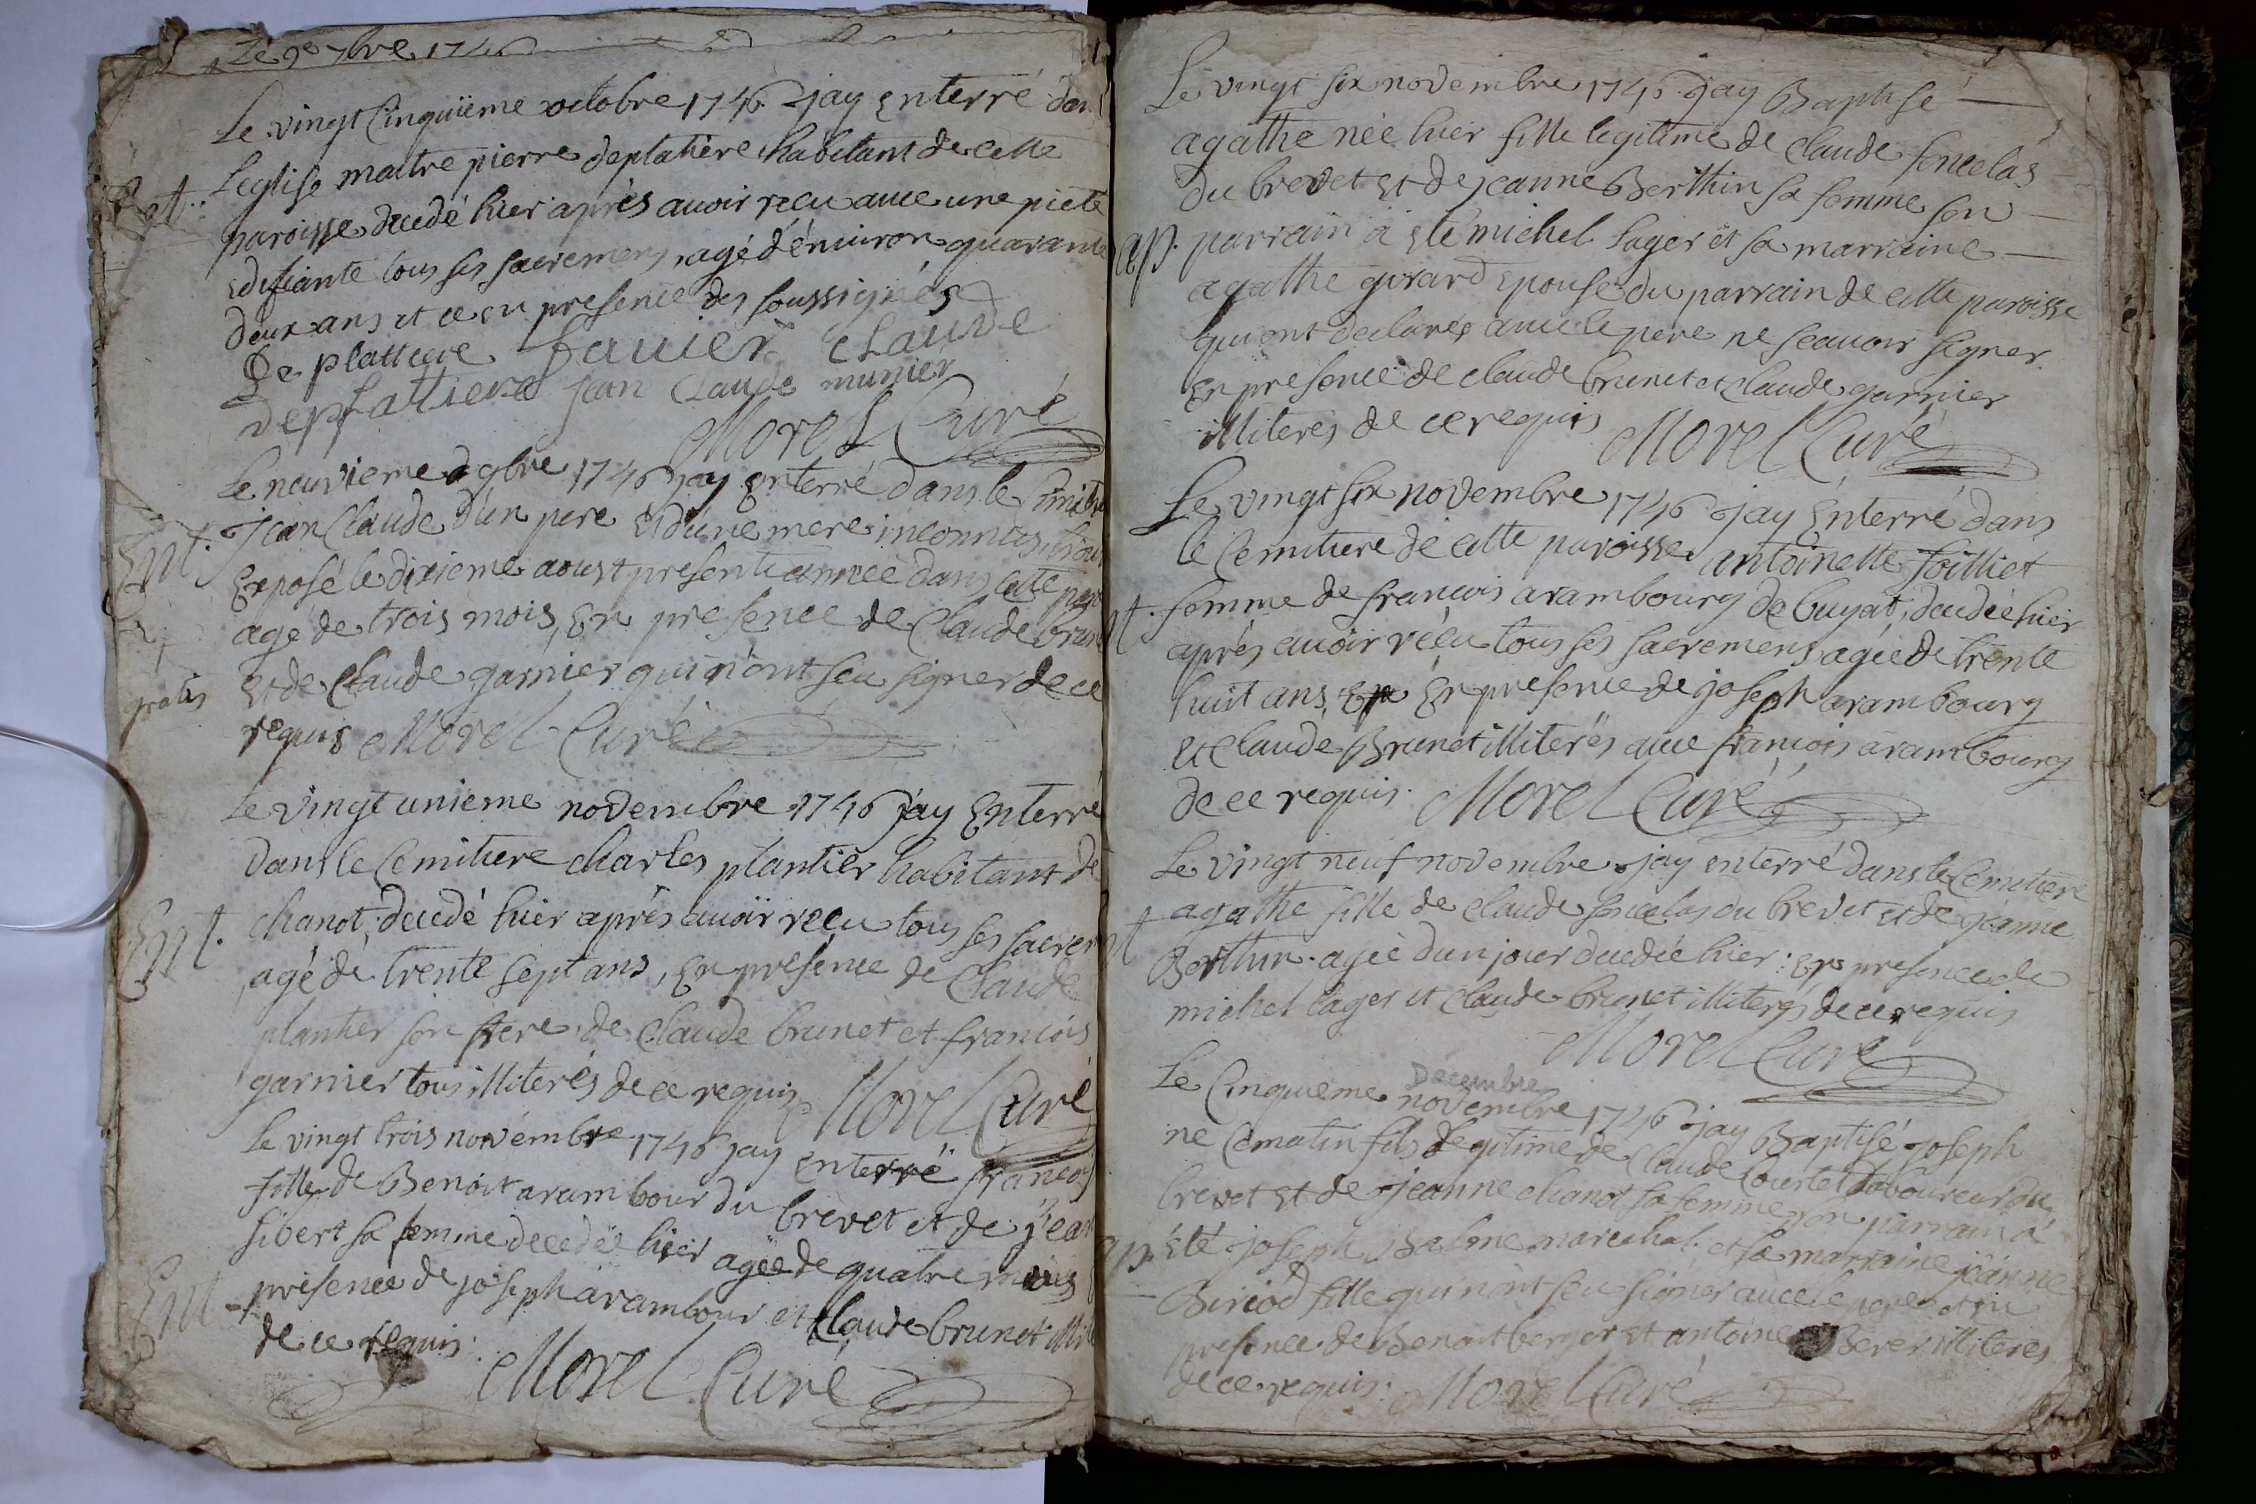 Le 9e 7bre 1746
Le vingt Cinquieme octobre 1746 jay Enterré dan
L'eglise maitre pierre deplatiere habitant de cette
Ent.
paroisse decedé hier après avoir recu avec une pieté
Edifiante tous ses sacremens, agé d'environ quarante
deux ans et ce en presence des soussignés
De plattiere favier Claude
deplatiere jean Claude munier
Morel Curé
Le neuvieme 9bre 1746 jay Enterré dans le
jean Claude d'un pere Et d'une mere inconnus
Ent.
Exposé le dixieme aoust presente année dans cette
agé de trois mois, En presence de Claude brunet
Et de Claude garnier qui n'ont sceu signer de ce
gratis
requis Morel Curé
Le vingt unieme novembre 1746 jay Enterré
dans le Cemitiere charles plantier habitant de
Ent.
chanot, decedé hier après avoir recu tous ses sacrem
agé de trente sept ans, En presence de Claude
plantier son frere, de Claude brunet et francois
garnier tous illiterés de ce requis Morel Curé
Le vingt trois novembre 1746 jay enterré francois
fille de Benoit arambour du brevet et de jean
sibert sa femme decedée hier agée de quatre mois
Ent
presence de joseph arambour et Claude brunet illit
de ce requis. Morel Curé
Le vingt six novembre 1746 jay Baptisé
agathe née hier fille legitime de Claude foncelas
du brevet Et de jeanne Berthin sa femme son
ap. parrain à Eté michel lager et sa marraine
agathe girard Epouse du parrain de cette paroisse
qui ont declarés avec le pere ne scavoir signer
En presence de Claude brunet et Claude garnier
illiterés de ce requis Morel Curé
Le vingt six novembre 1746 jay Enterré dans
le Cemitiere de cette paroisse antoinette foilliet
nt. femme de francois arambourg de buyat, decedée hier
aprés avoir récu tous ses sacremens agée de trente
huit ans, En presence de joseph arambourg
et Claude Brunet illiterés avec francois arambourg
de ce requis. Morel Curé
Le vingt neuf novembre jay enterré dans le Cemitiere
nt agathe fille de Claude foncelas du brevet et de jeanne
Berthin agée d'un jour decedée hier: En presence de
michel lager et Claude brunet illiterés de ce requis
Morel Curé
Decembre
Le Cinquieme novembre 1746 jay Baptisé joseph
ne Ce matin fils legitime de Claude Courtet laboureur du
brevet Et de jeanne chanot sa femme son parrain à
ap. Eté joseph Balme marechal et sa marraine jeanne
Biriod fille qui n'ont sceu signer avec le pere et en
presence de Benoit berger Et antoine Berer illiterés
de ce requis. Morel Curé